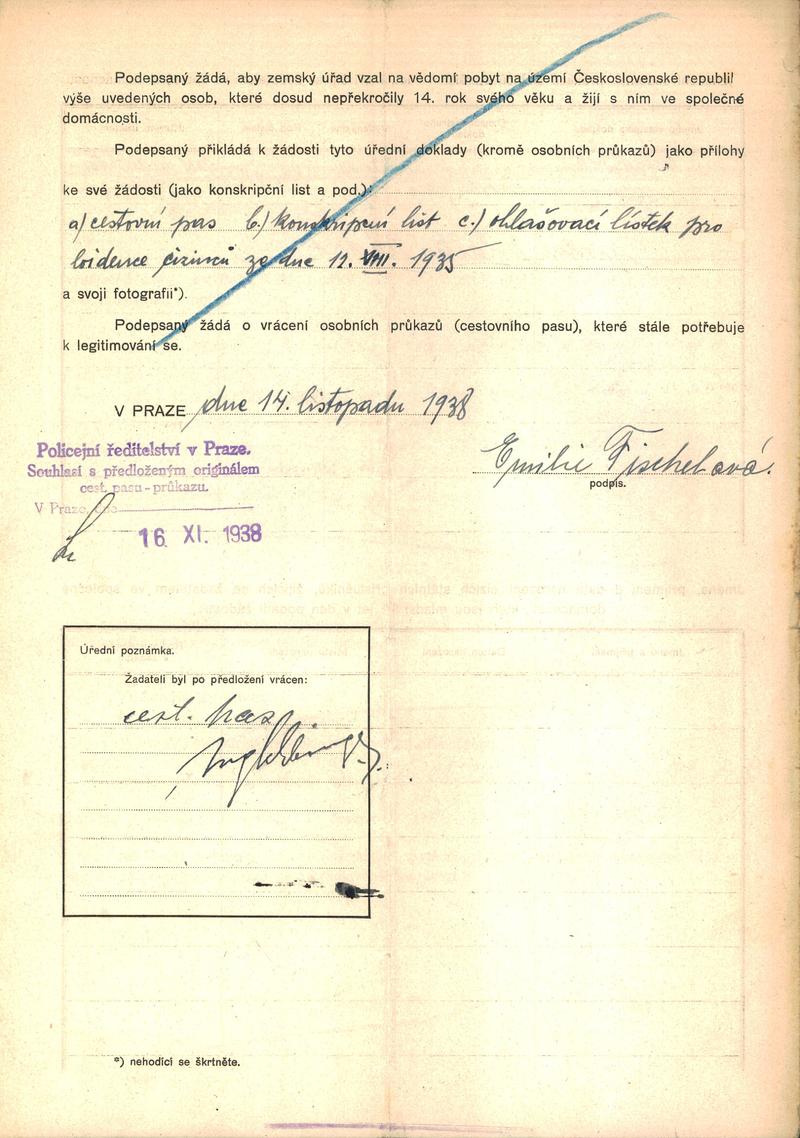 Podepsaný žádá, aby zemský úřad vzal na vědomí pobyt na území Československé republi
výše uvedených osob, které dosud nepřekročily 14. rok svého věku a žijí s ním ve společné
domácnosti.
Podepsaný přikládá k žádosti tyto úřední doklady (kromě osobních průkazů) jako přílohy
ke své žádosti (jako konskripční list a pod.):
a) cestovní pas b.) konskripční list c.) ohlašovací lístek pro
evidence cizinců ze dne 12. VIII. 1935
a svoji fotografii*).
Podepsaný žádá o vrácení osobních průkazů (cestovního pasu), které stále potřebuje
k legitimování se.
V PRAZE dne 14. listopadu 1938
Policejní ředitelství v Praze.
Souhlasí s předloženým originálem
cest. pasu - průkazu.
V Praze, dne
16. XI. 1938
Emilie Fischelová.
podpis.
Úřední poznámka.
Žadateli byl po předložení vrácen:
cest. pas
*) nehodící se škrtněte.